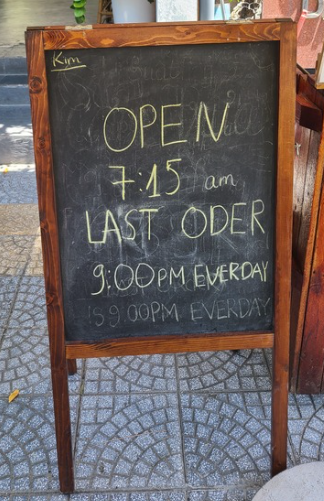 Kim
OPEN
7:15 am
LAST ODER
9:00PM EVERDAY
9:00PM EVERDAY